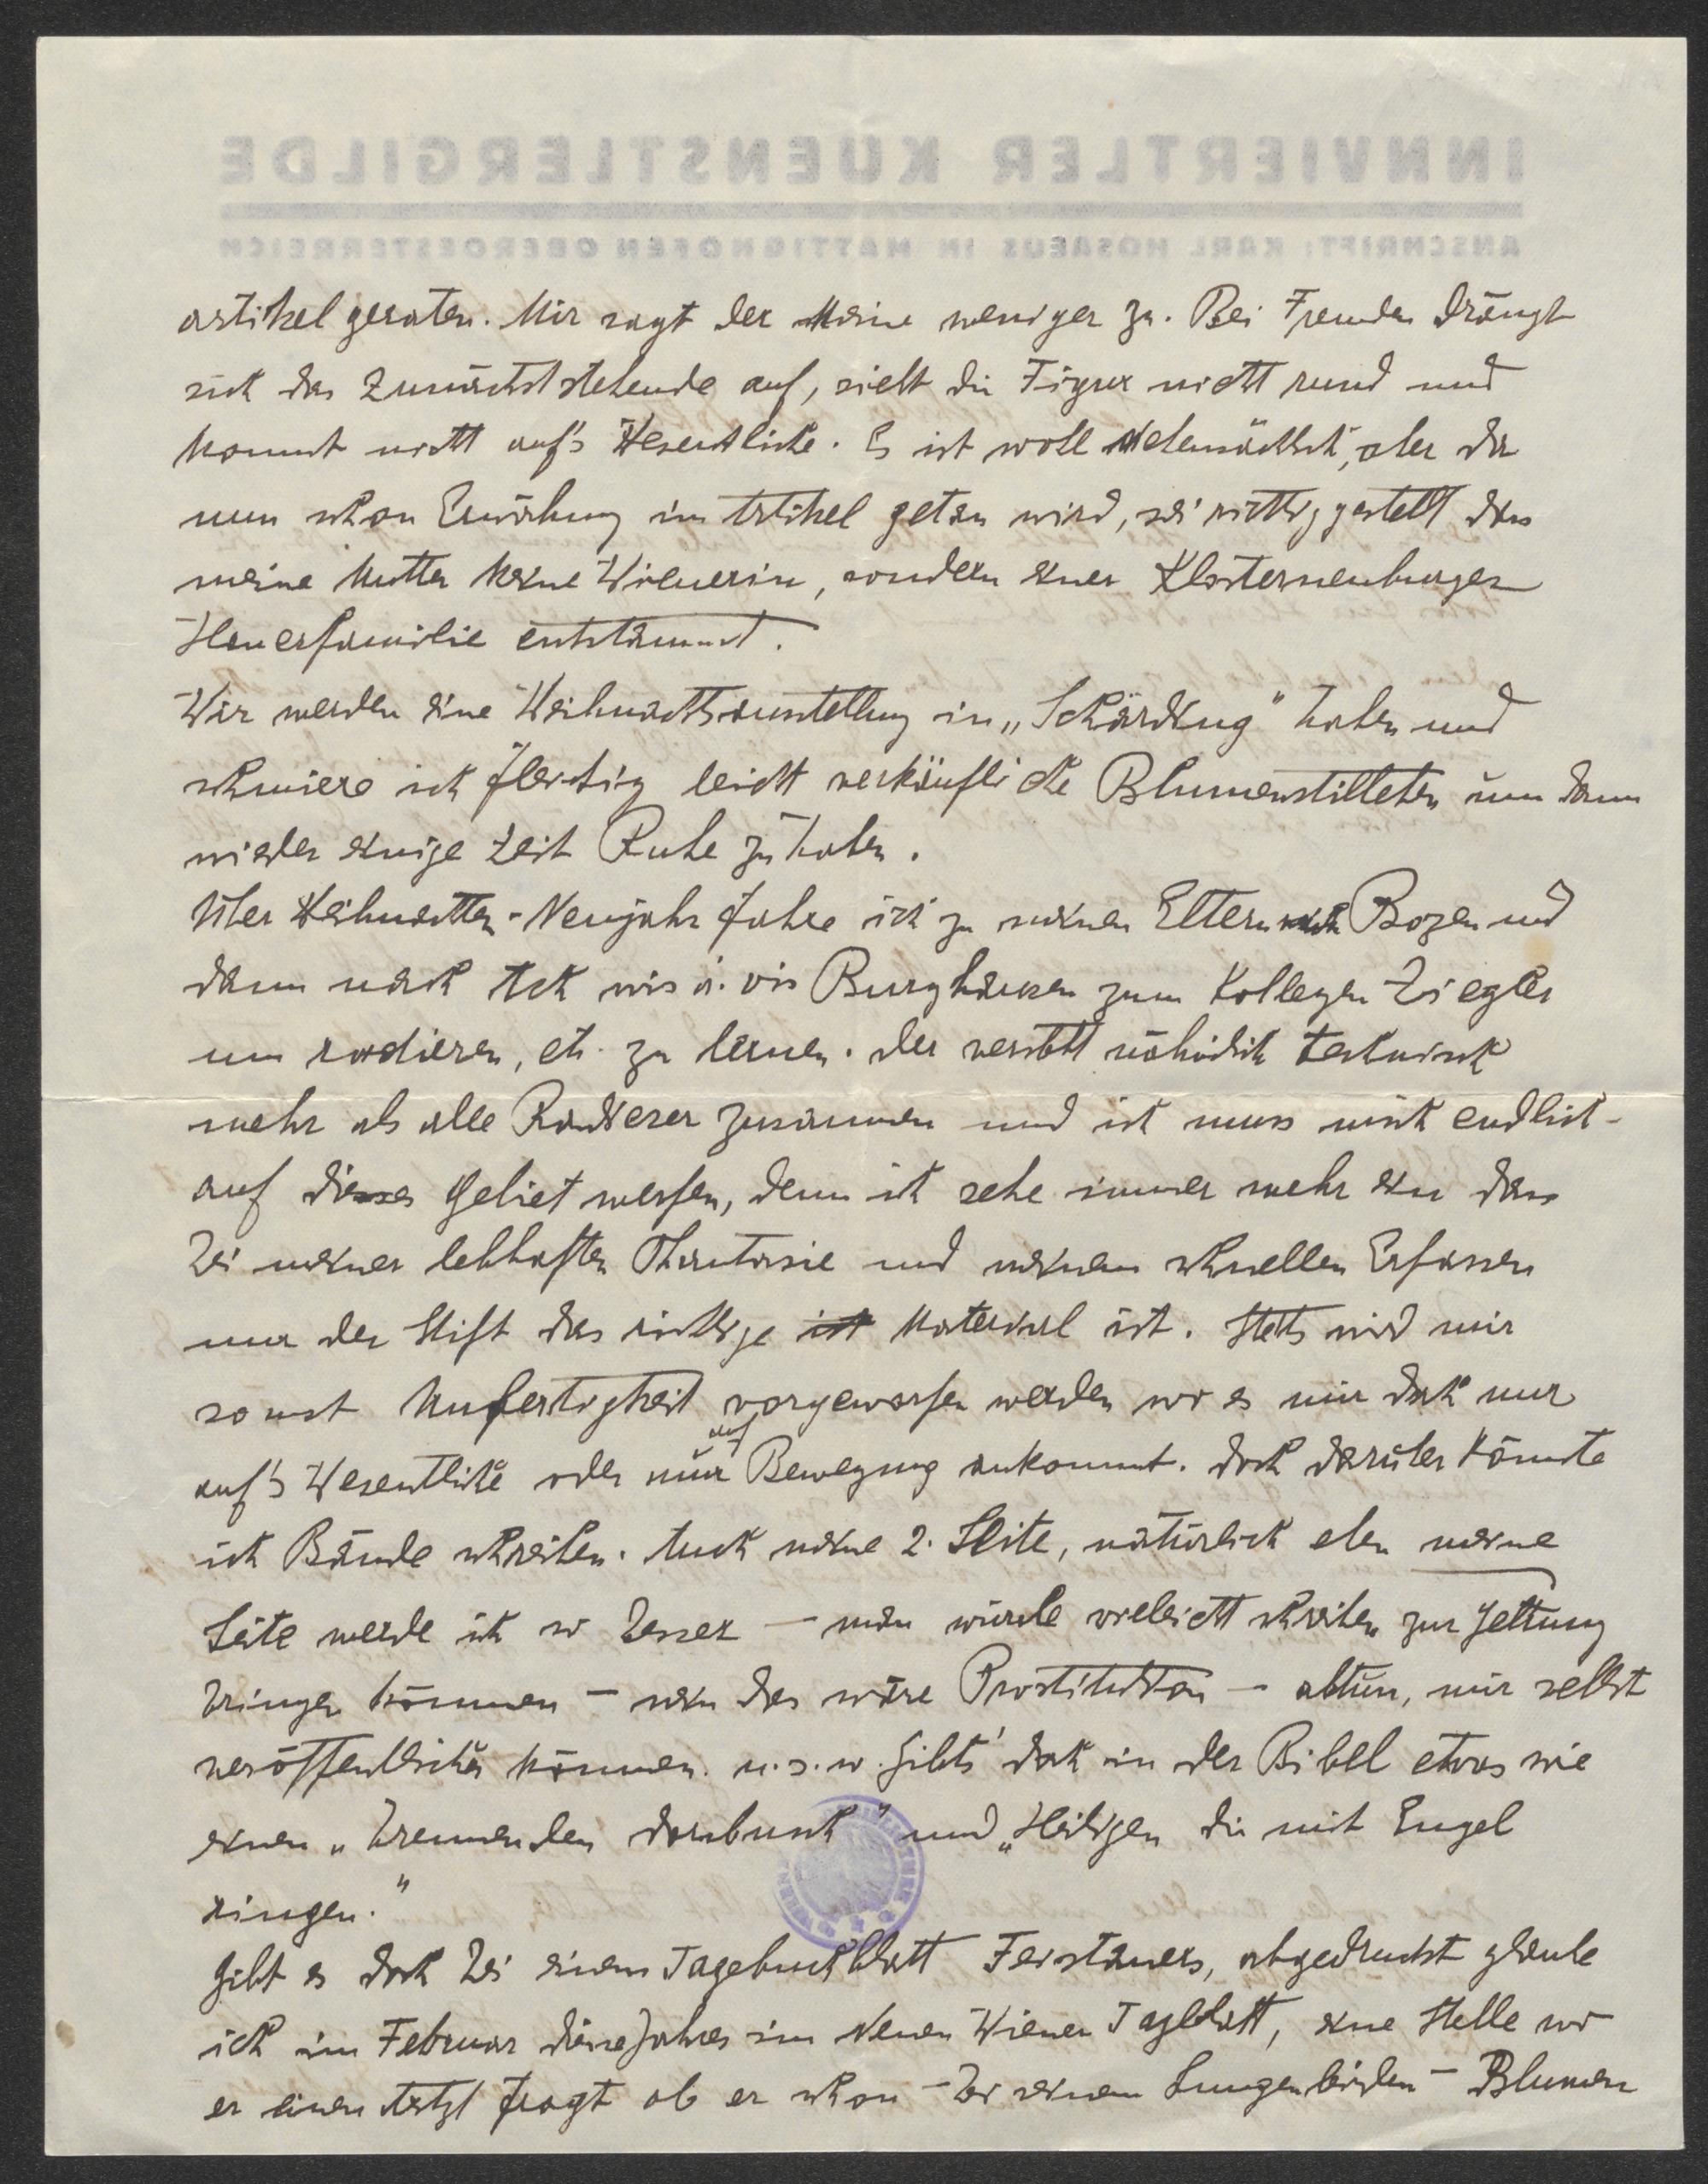 INNVIERTLER KUENSTLERGILDE
ANSCHRIFT: KARL HOSAEUS IN MATTIGHOFEN OBEROESTERREICH
artikel geraten. Mir sagt der Meine weniger zu. Bei Fremden drängt
sich das Zunächststehende auf, sieht die Figur nicht rund und
kommt nicht auf's Wesentliche. Es ist wohl nebensächlich, aber da
nun schon Erwähnung im Artikel getan wird, sei richtig gestellt dass
meine Mutter keine Wienerin, sondern einer Klosterneuburger
Hauerfamilie entstammt.
Wir werden eine Weihnachtsausstellung in „Schärding" haben und
schmiere ich fleissig leicht verkäufliche Blumenstilleben um dann
wieder einige Zeit Ruhe zu haben.
Über Weihnachten-Neujahr fahre ich zu meinen Eltern nach Bozen und
dann nach Ach vis à. vis Burghausen zum Kollegen Ziegler
um radieren, etc. zu lernen. Der versteht nämlich technisch
mehr als alle Radierer zusammen und ich muss mich endlich
auf dieses Gebiet werfen, denn ich sehe immer mehr ein dass
bei meiner lebhaften Phantasie und meinem schnellen Erfassen
nur der Stift das richtige ist Material ist. Stets wird mir
sonst Unfertigkeit vorgeworfen werden wo es mir doch nur
auf's Wesentliche oder nur auf Bewegung ankommt. Doch darüber könnte
ich Bände schreiben. Auch meine 2. Seite, natürlich eben meine
Seite werde ich so besser — man würde vieleicht schreiben zur Geltung
bringen können — nein das wäre Prostitution — abtun, mir selbst
veröffentlichen können. u.s.w. Gibts' doch in der Bibel etwas wie
einen „brennenden Dornbusch" und „Heiligen die mit Engel
ringen."
Gibt es doch bei einem Tagebuchblatt Feistauers, abgedruckt glaube
ich im Februar diese Jahres im Neuen Wiener Tagblatt, eine Stelle wo
er einen Arzt fragt ob er schon - bei seinem Lungenleiden - Blumen